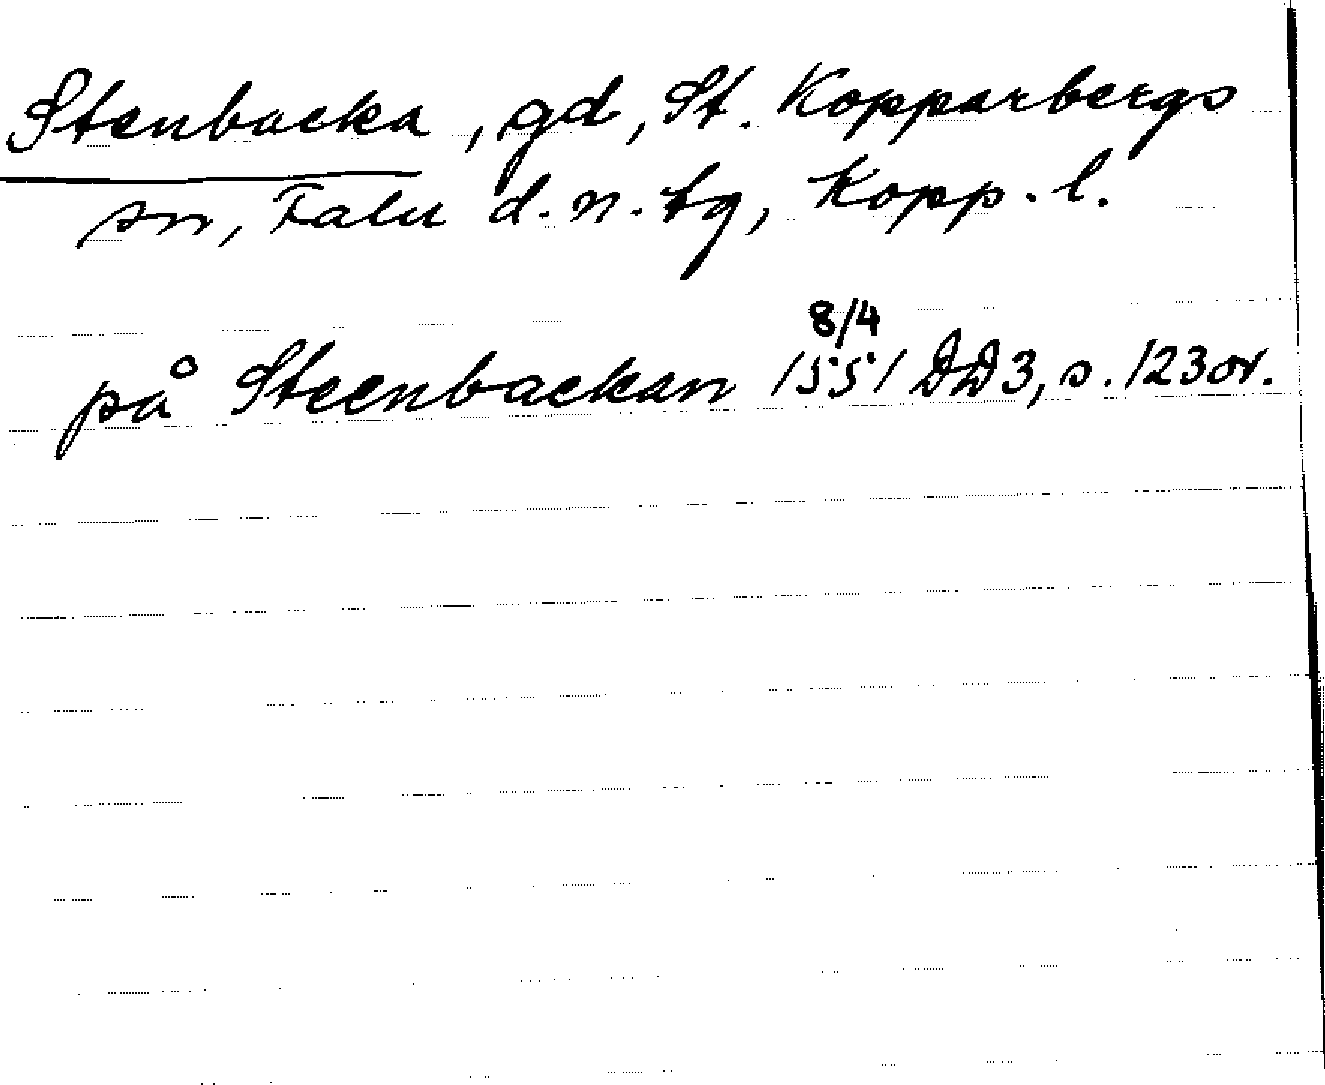 Stenbacka, gd, St. Kopparbergs
sn, Falu d.n. tg, Kopp. l.
8/4
på Steenbacken 1551 DD3, s. 123 or.